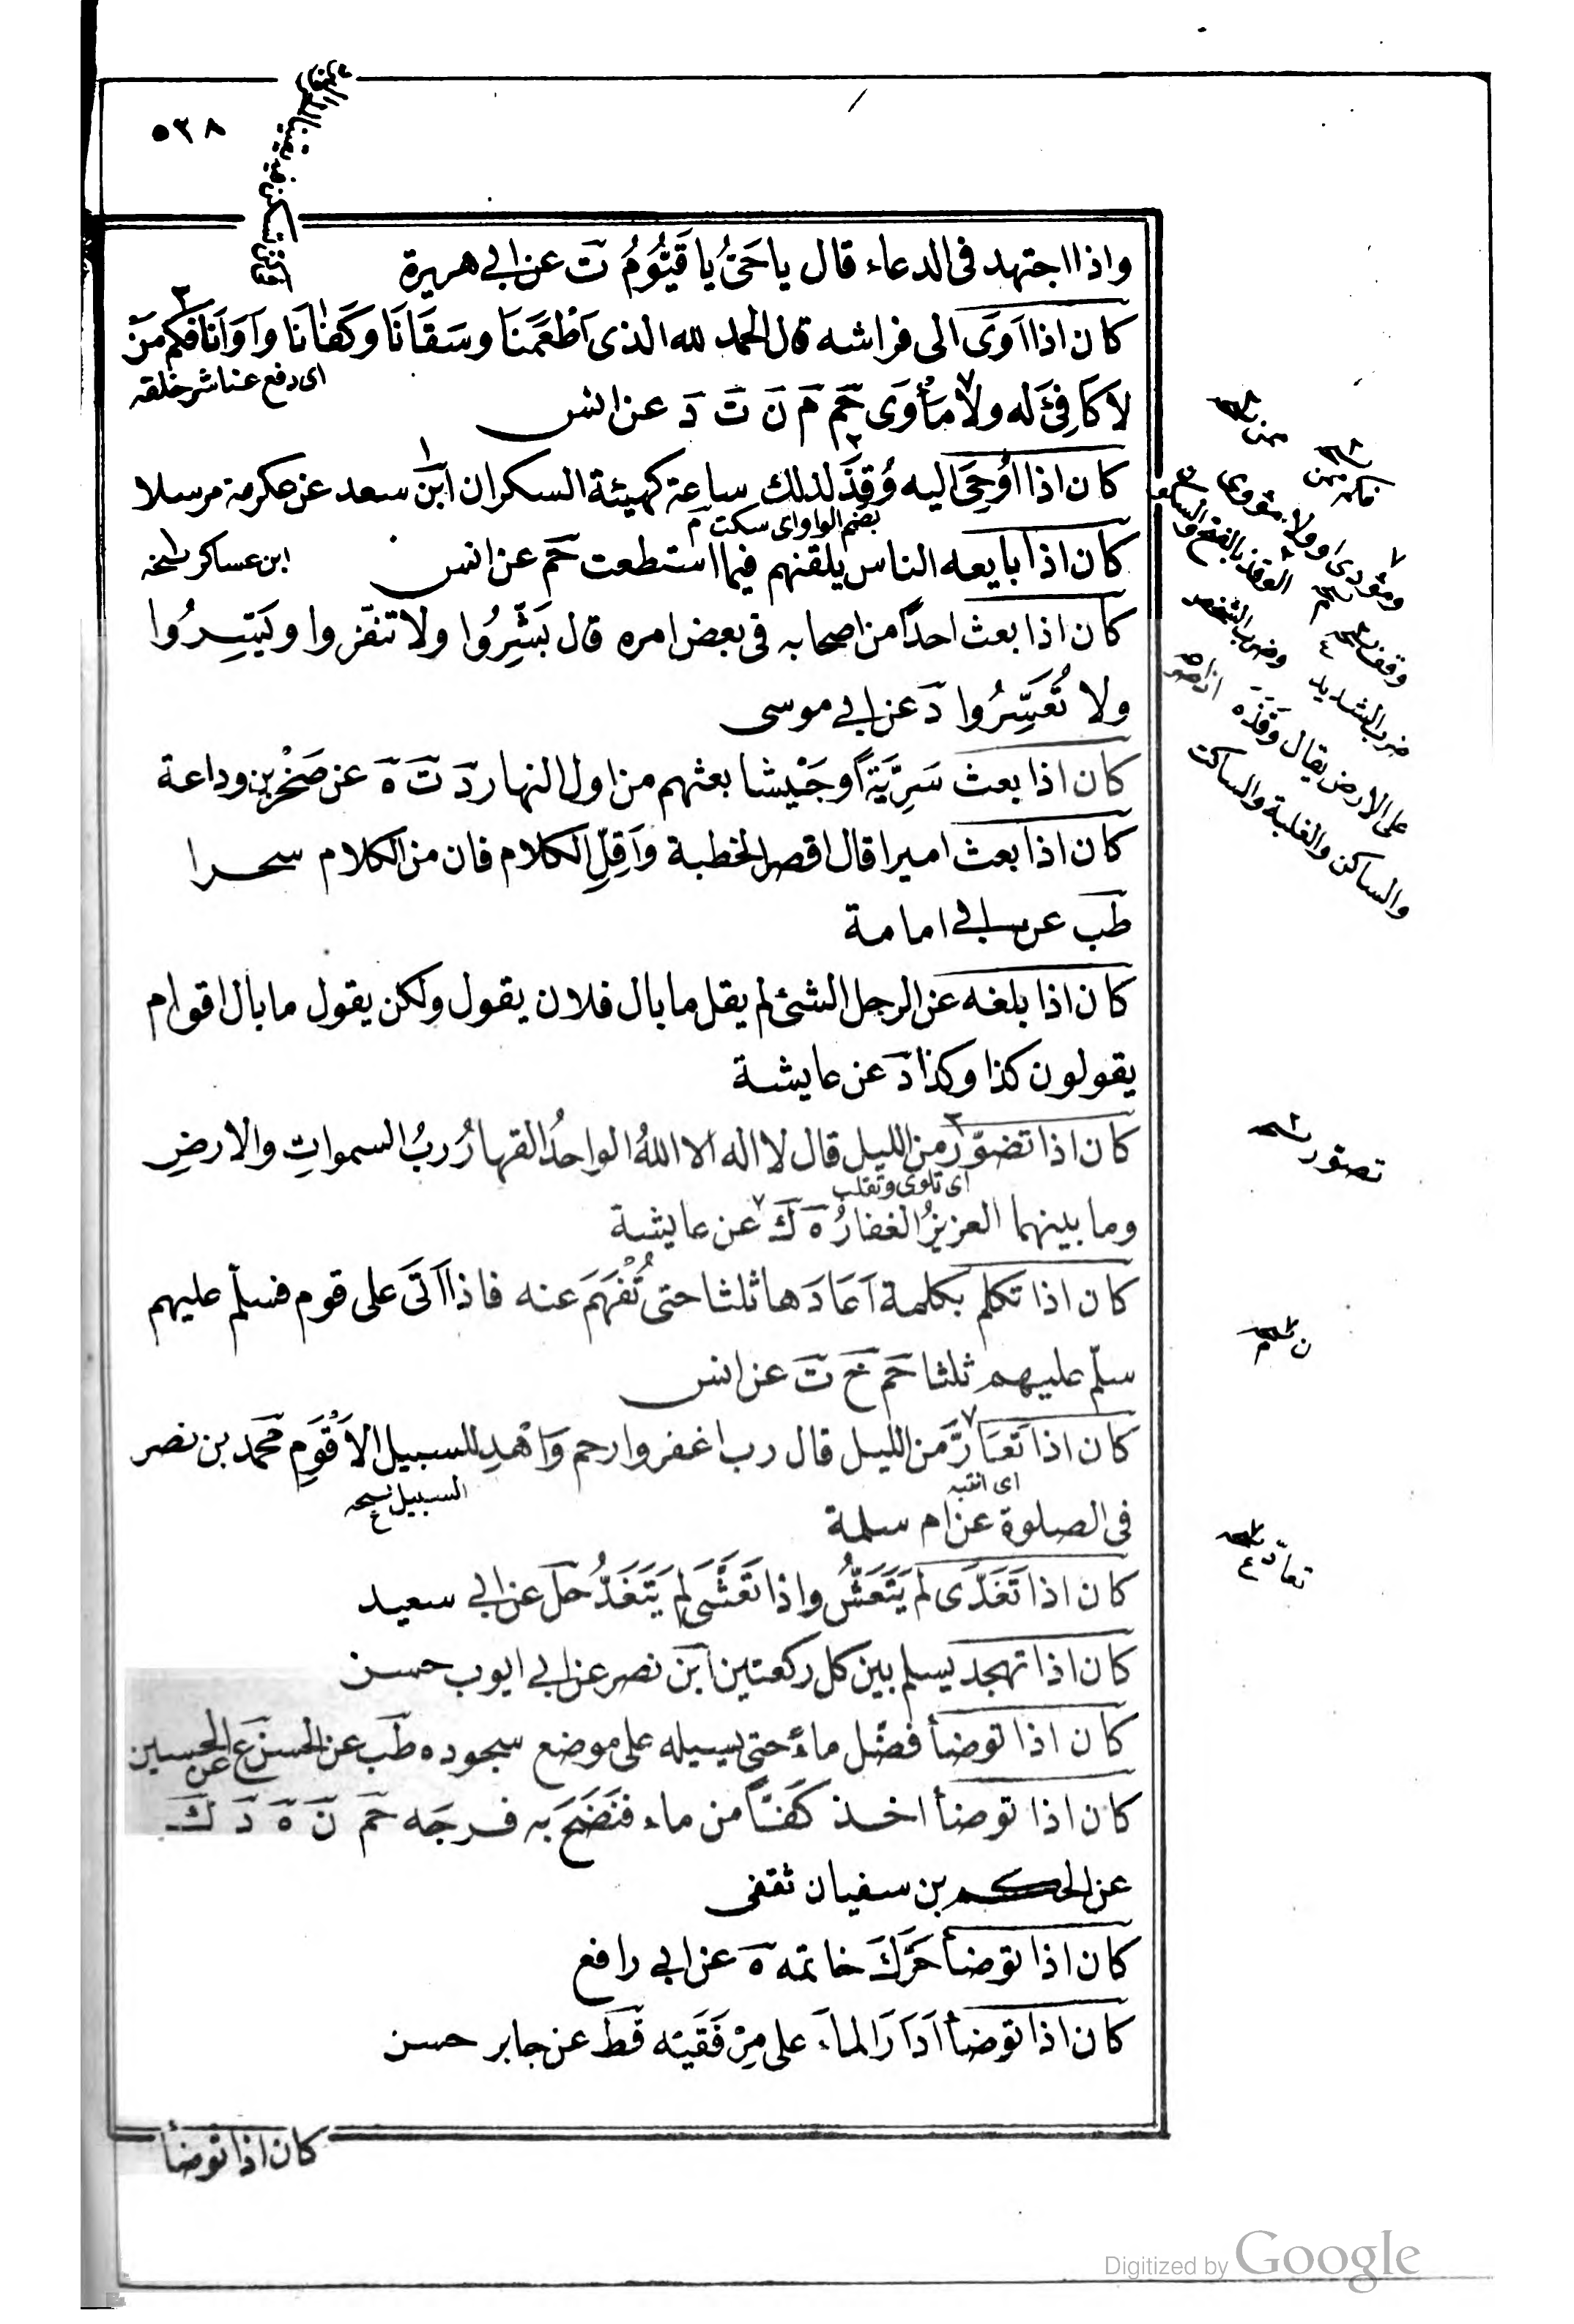 ٥٣٨
واذا اجتهد فى الدعاء قال يا حَىُّ يا قَيُّوُمُ تَ عن ابى هريرة
كان اذا اَوَى الى فراشه قال الحمد لله الذى اَطْعَمَنَا وسَقَانَا وكَفَانَا وَآوَانَا فَكَم مَنْ
اى دفع عنا شر خلقه
لا كَافِىَٔ له ولا مَأْوَى حَمَ مَ نَ تَ دَ عن انس
كان اذا اُوحِىَ اليه وُقِذَ لذلك ساعة كهيئة السكران ابن سعد عن عكرمة مرسلا
بضم الواو اى سكت م
كان اذا بايعه الناس يلقنهم فيما استطعت حَم عن انس
ابن عساكر نسخه
كان اذا بعث احداً من اصحابه فى بعض امره قال بَشِّرُوا ولا تنفّروا ويَسِّرُوا
ولا تُعَسِّرُوا دَ عن ابى موسى
كان اذا بعث سَرِيَّةً او جَيْشا بعثهم من اول النهار دَ تَ هَ عن صَخْر بن وداعة
كان اذا بعث اميرا قال اقصر الخطبة وَاَقِلِّ الكلام فان من الكلام سحرا
طَب عن ابى امامة
كان اذا بلغه عن الرجل الشئ لم يقل ما بال فلان يقول ولكن يقول ما بال اقوام
يقولون كذا وكذا دَ عن عايشة
كان اذا تضوّر من الليل قال لا اله الا اللهُ الواحدُ القهارُ ربُ السمواتِ والارضِ
تصتور نسخه
اى تلوى وتقلب
وما بينهما العزيزُ الغفارُ هَ كَ عن عايشة
كان اذا تكلم بكلمة اَعَادَها ثلثا حتى تُفْهَمَ عنه فاذا اَتَى على قوم فسلّم عليهم
سلّم عليهم ثلثا حَم خَ تَ عن انس
كان اذا تَعَارَّ من الليل قال رب اغفر وارحم وَاهْدِ للسبيل الاَقْوَمِ محَمد بن نصر
اى انتبه
السبيل نسخه
فى الصلوة عن ام سلمة
كان اذا تَغَدَّى لم يَتَعَشَّ واذا تَعَشَّى لم يَتَغَدَّ حَل عن ابى سعيد
كان اذا تهجد يسلم بين كل ركعتين ابن نصر عن ابى ايوب حسن
كان اذا توضأ فضّل ماءً حتى يسيله على موضع سجوده طَب عن الحسن ع عن الحسين
كان اذا توضأ اخذ كَفّاً من ماء فنَضَحَ به فرجَه حَم نَ هَ دَ كَ
عن الحكم بن سفيان ثقفى
كان اذا توضأ حَرَّكَ خاتمه هَ عن ابى رافع
كان اذا توضأ اَدَارَ الماءَ على مِرْفَقَيْه قَط عن جابر حسن
كان اذا توضأ
Digitized by Google